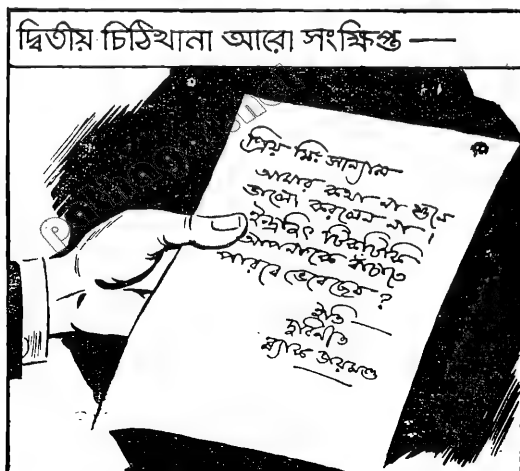 দ্বিতীয় চিঠিখানা আরো সংক্ষিপ্ত —
প্রিয় মিঃ সান্যাল
আমার কথা না শুনে
ভালো করলেন না।
ইন্দ্রজিৎ
আপনাকে বাঁচাতে
পারবে ভেবেছেন?
ইতি —
দুর্বিনীত
ব্ল্যাক ডায়মণ্ড